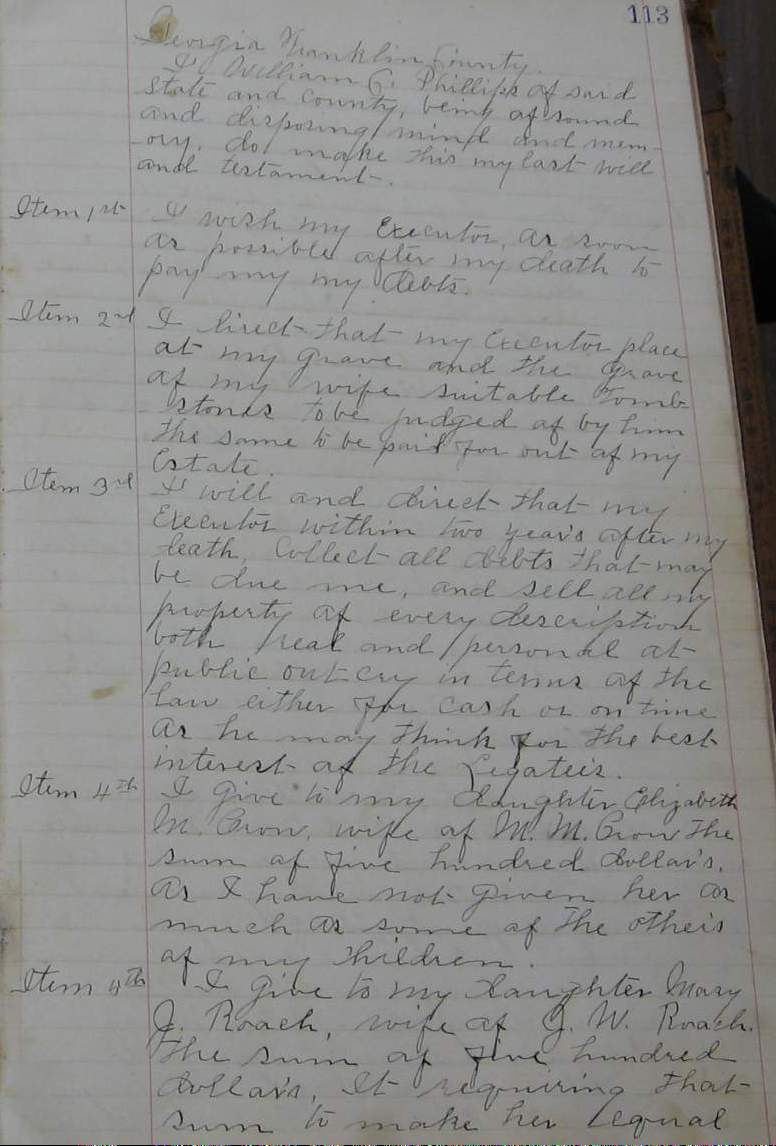 113
Georgia Franklin County.
I William C. Phillips of said
State and county, being of sound
and disposing mind and mem-
ory, do make this my last will
and testament.
Item 1st I wish my Executor, as soon
as possible after my death to
pay my my debts.
Item 2nd I direct that my Executor place
at my grave and the grave
of my wife suitable Tomb
stones to be judged of by him
the same to be paid for out of my
Estate.
Item 3rd I will and direct that my
Executor within two year's after my
death, Collect all debts that may
be due me, and sell all my
property of every description
both real and personal at
public out cry in terms of the
law either for cash or on time
as he may think for the best
interest of the Legatee's.
Item 4th I give to my daughter Elizabeth
M. Crow, wife of M. M. Crow the
sum of five hundred dollar's.
As I have not given her as
much as some of the other's
of my children.
Item 5th I give to my daughter Mary
J. Roach, wife of J. W. Roach.
the sum of five hundred
dollar's, It requiring that
sum to make her equal